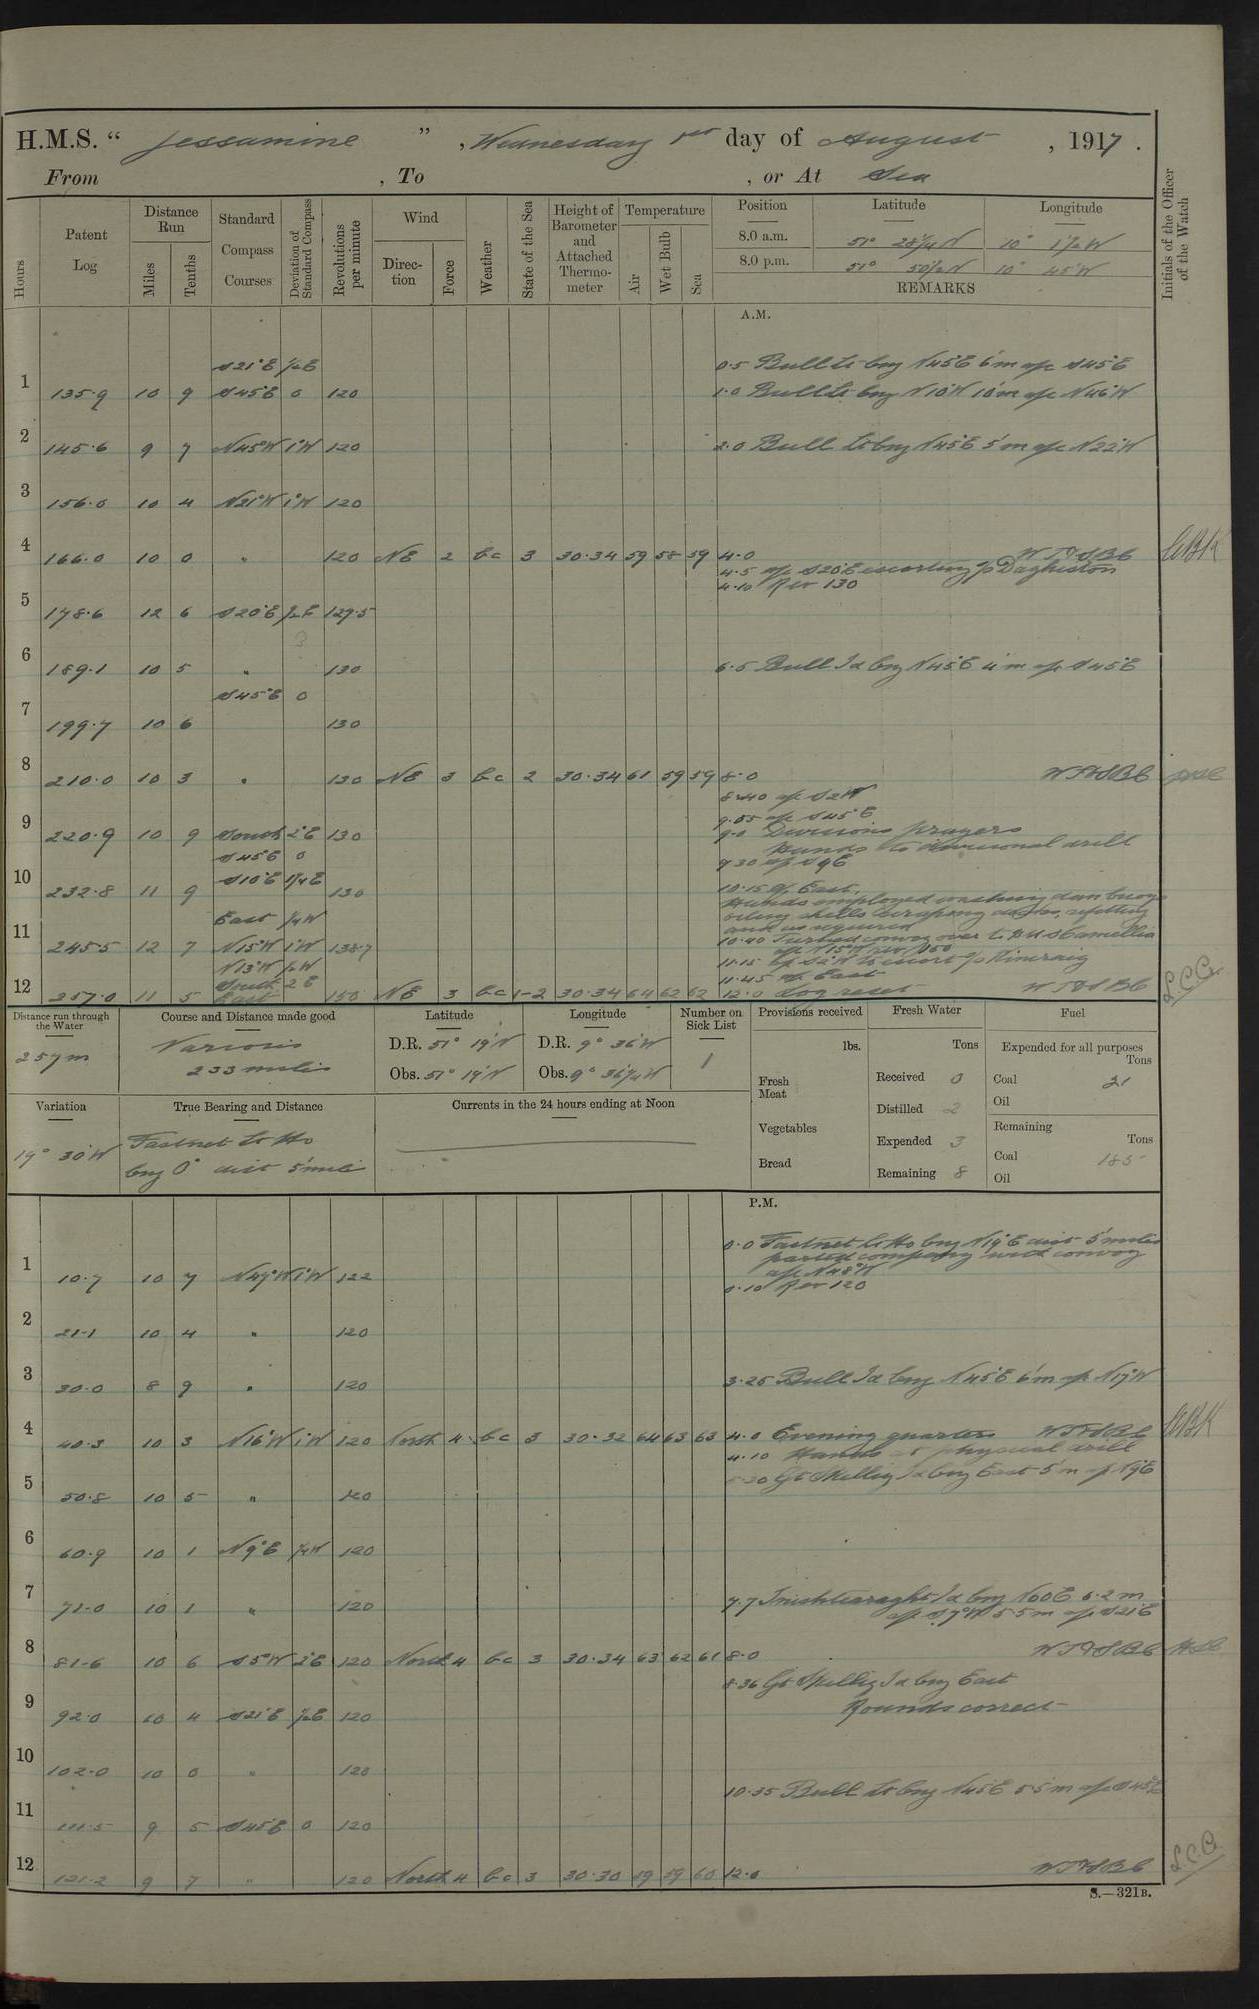 H.M.S. “ Jessamine ” , Wednesday 1st day of August , 1917 .
From , To , or At Sea
Hours
Patent Log
Distance Run
Miles
Tenths
Standard Compass Courses
Deviation of Standard Compass
Revolutions per minute
Wind
Direction
Force
Weather
State of the Sea
Height of Barometer and Attached Thermometer
Temperature
Air
Wet Bulb
Sea
Position Latitude Longitude
8.0 a.m. 51° 28¼ N 10° 1½ W
8.0 p.m. 51° 50½ N 10° 45 W
REMARKS
Initials of the Officer of the Watch
A.M.
S21°E ½E 0.5 Bull Lt brg N45E 6'm a/c S45°E
1 135.9 10 9 S45E 0 120 1.0 Bull Lt brg N10W 10'm a/c N46°W
2 145.6 9 7 N45°W 1°W 120 2.0 Bull Lt brg N45E 5'm a/c N22°W
3 156.0 10 4 N21°W 1°W 120
4 166.0 10 0 " 120 NE 2 bc 3 30.34 59 58 59 4.0 WT&SBC
4.5 a/c S20°E escorting S/S Daghestan
4.10 Rev 130
5 178.6 12 6 S20°E ½E 129.5
6 189.1 10 5 " 130 6.5 Bull Id brg N45E 4'm a/c S45°E
S45E 0
7 199.7 10 6 130
8 210.0 10 3 " 130 NE 3 bc 2 30.34 61 59 59 8.0 WT&SBC
8.40 a/c S2W
9.05 a/c S45°E
9 220.9 10 9 South 2°E 130 9.0 Divisions prayers
Hands to divisional drill
S45E 0 9.30 a/c S9E
10 232.8 11 9 S10°E ¼E 130 10.15 a/c East.
Hands employed washing down
oiling shells scraping refitting
and as required
East ¼W
11 245.5 12 7 N15°W 1°W 138.7 10.40 Turned convoy over to HMS Camellia
a/c N15W rev 150
N13°W ½W 11.15 a/c S2W to escort S/S Kincraig
South 2E 11.45 a/c East
12 257.0 11 5 East 150 NE 3 bc 1-2 30.34 64 62 62 12.0 Log reset WT&SBC
Distance run through the Water
257m
Course and Distance made good
Various
233 miles
Latitude
D.R. 51° 19'N
Obs. 51° 19'N
Longitude
D.R. 9° 36'W
Obs. 9° 36¼W
Number on Sick List
1
Provisions received
lbs.
Fresh Meat
Vegetables
Bread
Fresh Water
Tons
Received 0
Distilled 2
Expended 3
Remaining 8
Fuel
Expended for all purposes
Tons
Coal 21
Oil
Remaining
Tons
Coal 185
Oil
Variation
19° 30'W
True Bearing and Distance
Fastnet Lt Ho
brg 0° dist 5'mile
Currents in the 24 hours ending at Noon
P.M.
0.0 Fastnet Lt Ho brg N19°E dist 5'miles
parted company with convoy
a/c N48°W
0.10 Rev 120
1 10.7 10 7 N47°W 1°W 122
2 21.1 10 4 " 120
3 30.0 8 9 " 120 3.25 Bull Id brg N45°E 6'm a/c N17°W
4 40.3 10 3 N16°W 1°W 120 North 4 bc 3 30.32 64 63 63 4.0 Evening quarters WT&SBC
4.10 Hands at physical drill
5.30 Gt Skellig Id brg East 5'm a/c N9°E
5 50.8 10 5 " 120
6 60.9 10 1 N9°E ¼W 120
7 71.0 10 1 " 120 7.7 Inishtearaght Id brg N60E 6.2 m
a/c S7°W 5.5 m a/c S21°E
8 81.6 10 6 S5°W 2°E 120 North 4 bc 3 30.34 63 62 61 8.0 WT&SBC
8.36 Gt Skellig Id brg East
Rounds correct
9 92.0 10 4 S21°E ½E 120
10 102.0 10 0 " 120
10.35 Bull Lt brg N45°E 5.5'm a/c S45°E
11 111.5 9 5 S45E 0 120
12 121.2 9 7 " 120 North 4 bc 3 30.30 59 59 60 12.0 WT&SBC
S.—321B.